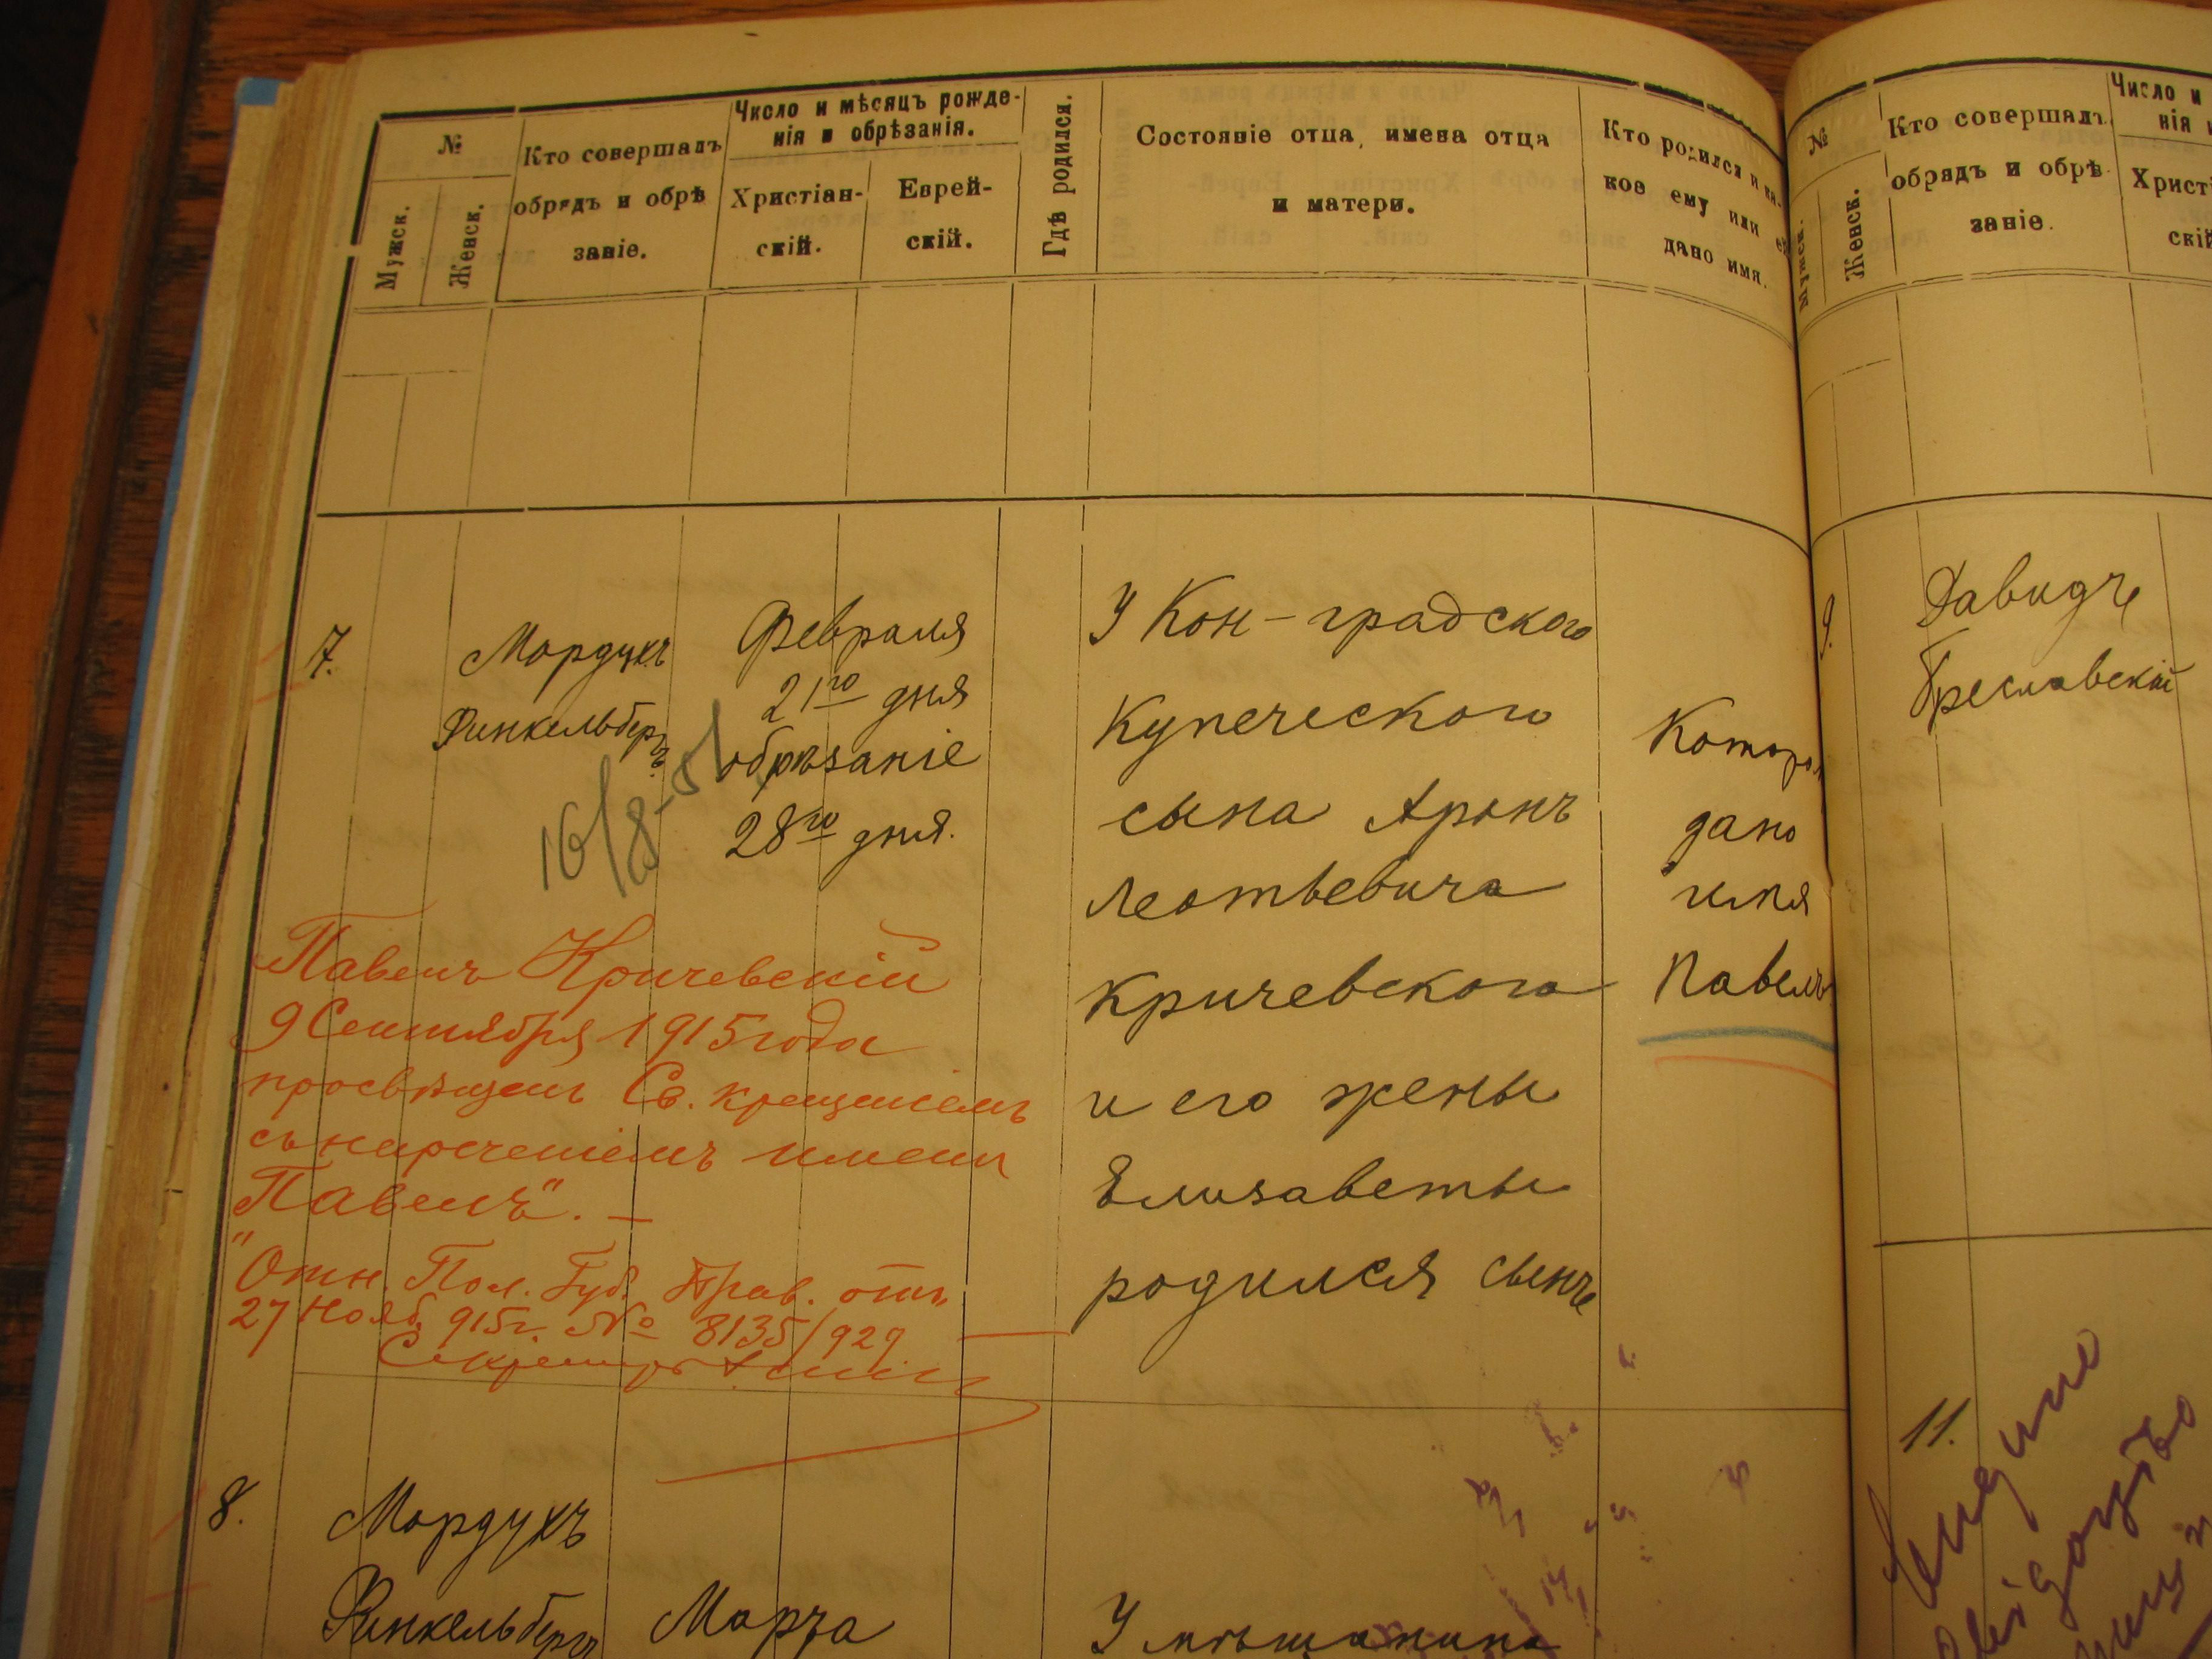 №
Мужск.
Женск.
Кто совершалъ
обрядъ и обрѣ
заніе.
Число и мѣсяцъ рожде-
нія и обрѣзанія.
Христіан-
скій.
Еврей-
скій.
Гдѣ родился.
Состояніе отца, имена отца
и матери.
Кто родился и ка-
кое ему или ей
дано имя.
7.
Мордухъ
Финкельбергъ.
Февраля
21го дня
обрѣзаніе
28го дня.
У Кон-градского
Купеческого
сына Аронъ
Леотьевича
Кричевского
и его жены
Елизаветы
родился сынъ
Котором
дано
имя
Павелъ
16/8-51
Павелъ Кричевскій
9 Сентября 1915 года
просвѣщенъ Св. крещеніемъ
съ нареченіемъ имени
"Павелъ". —
Отн. Пол. Губ. Прав. отъ
27 Нояб. 915г. № 8135/929
Секретарь
8.
Мордухъ
Финкельбергъ
Марта
У мѣщанина
№
Мужск.
Женск.
Кто совершалъ
обрядъ и обрѣ
заніе.
Число и
нія и
Христі
скій
9.
Давидъ
Бреславскій
11.